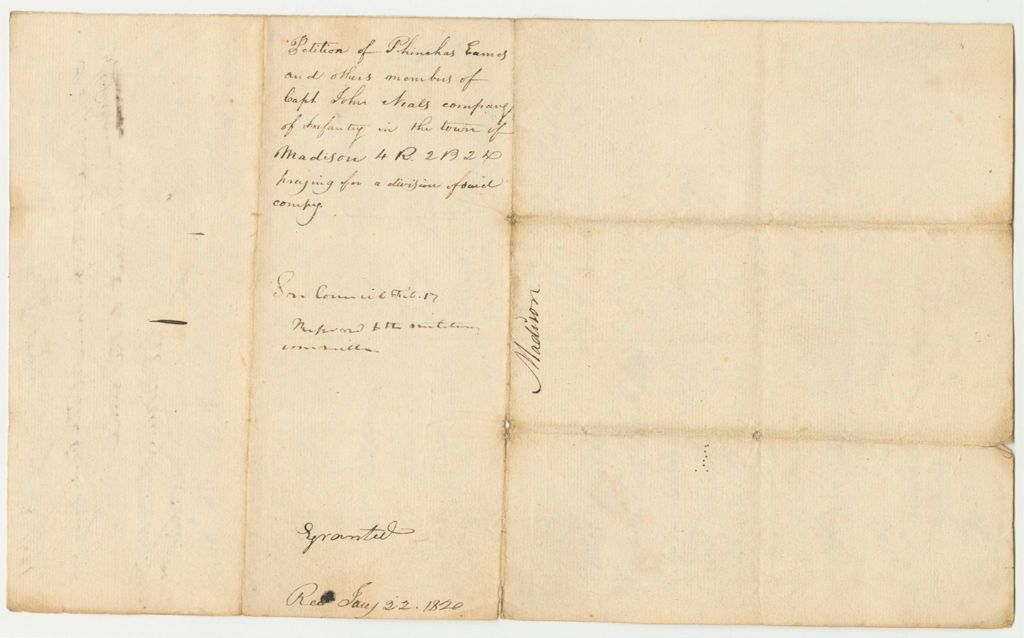 Petition of Phinehas Eames
and others members of
Capt John Neals company
of Infantry in the town of
Madison 4 R. 2 B 2 D
praying for a division of said
compy.
In Council Feb. 17
Referred to the military
committee
granted
Recd Jany 22. 1820
Madison